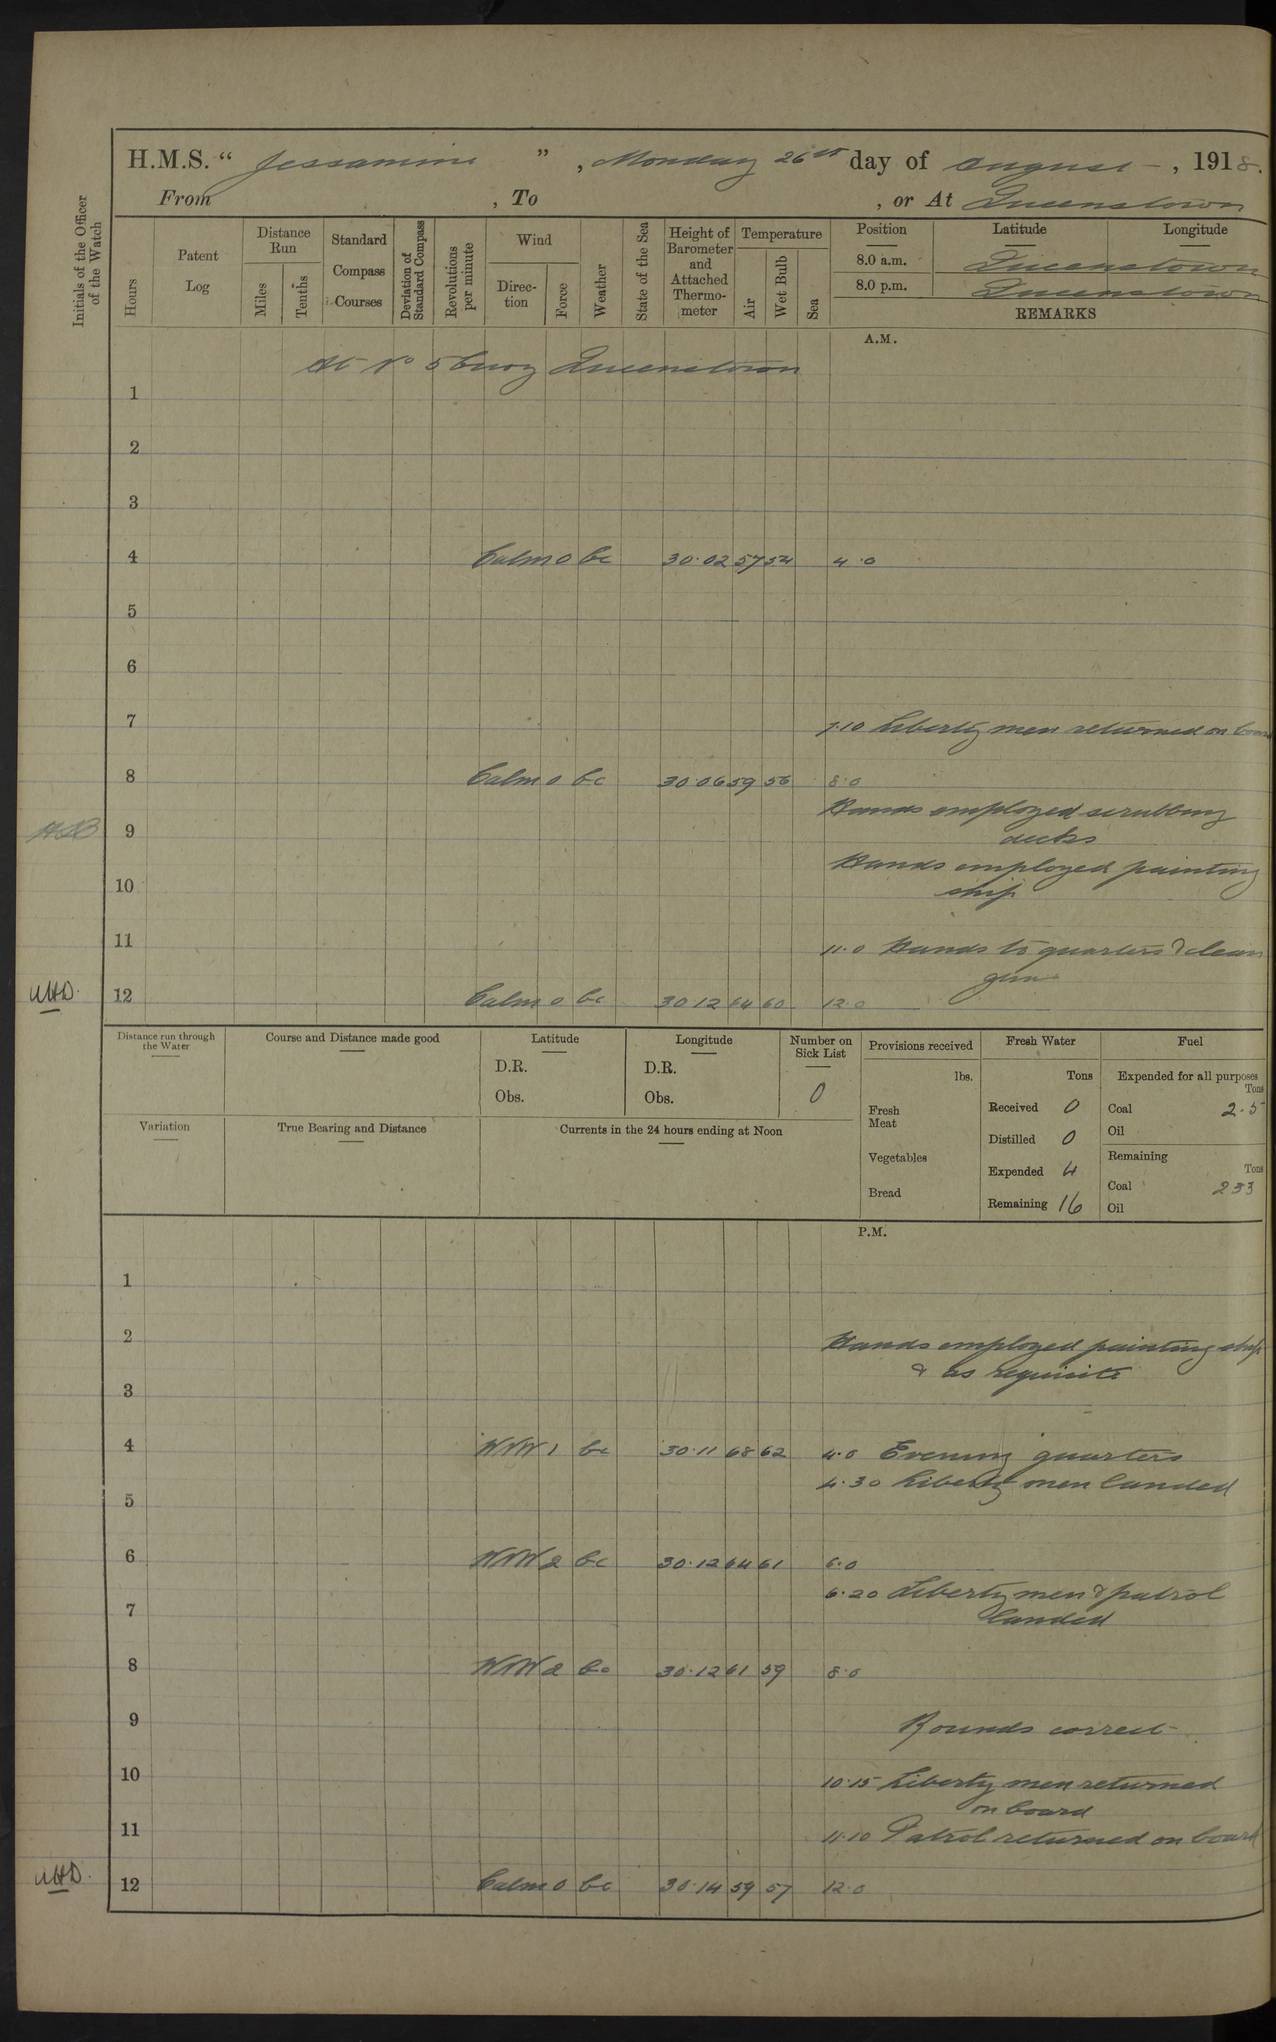 H.M.S. “ Jessamine ” , Monday 26th day of August , 1918.
From , To , or At Queenstown
Initials of the Officer of the Watch
Hours
Patent Log
Distance Run
Miles
Tenths
Standard Compass Courses
Deviation of Standard Compass
Revolutions per minute
Wind
Direction
Force
Weather
State of the Sea
Height of Barometer and Attached Thermometer
Temperature
Air
Wet Bulb
Sea
Position Latitude Longitude
8.0 a.m. Queenstown
8.0 p.m. Queenstown
REMARKS
A.M.
At No 5 buoy Queenstown
1
2
3
4 Calm 0 bc 30.02 57 54 4.0
5
6
7
7.10 Liberty men returned on board
8 Calm 0 bc 30.06 59 56 8.0
Hands employed scrubbing
9
decks
Hands employed painting
10
ship
11 11.0 Hands to quarters & clean
gun
12 Calm 0 bc 30.12 64 60 12.0
Distance run through the Water
Course and Distance made good
Latitude
D.R.
Obs.
Longitude
D.R.
Obs.
Number on Sick List
0
Variation
True Bearing and Distance
Currents in the 24 hours ending at Noon
Provisions received
lbs.
Fresh Meat
Vegetables
Bread
Fresh Water
Tons
Received 0
Distilled 0
Expended 4
Remaining 16
Fuel
Expended for all purposes
Tons
Coal 2.5
Oil
Remaining
Tons
Coal 233
Oil
P.M.
1
2 Hands employed painting ship
& as requisite
3
4 WNW 1 bc 30.11 68 62 4.0 Evening quarters
4.30 Liberty men landed
5
6 WNW 2 bc 30.12 64 61 6.0
6.20 Liberty men & patrol
7 landed
8 WNW 2 bc 30.12 61 59 8.0
9 Rounds correct
10 10.15 Liberty men returned
on board
11 11.10 Patrol returned on board
12 Calm 0 bc 30.14 59 57 12.0